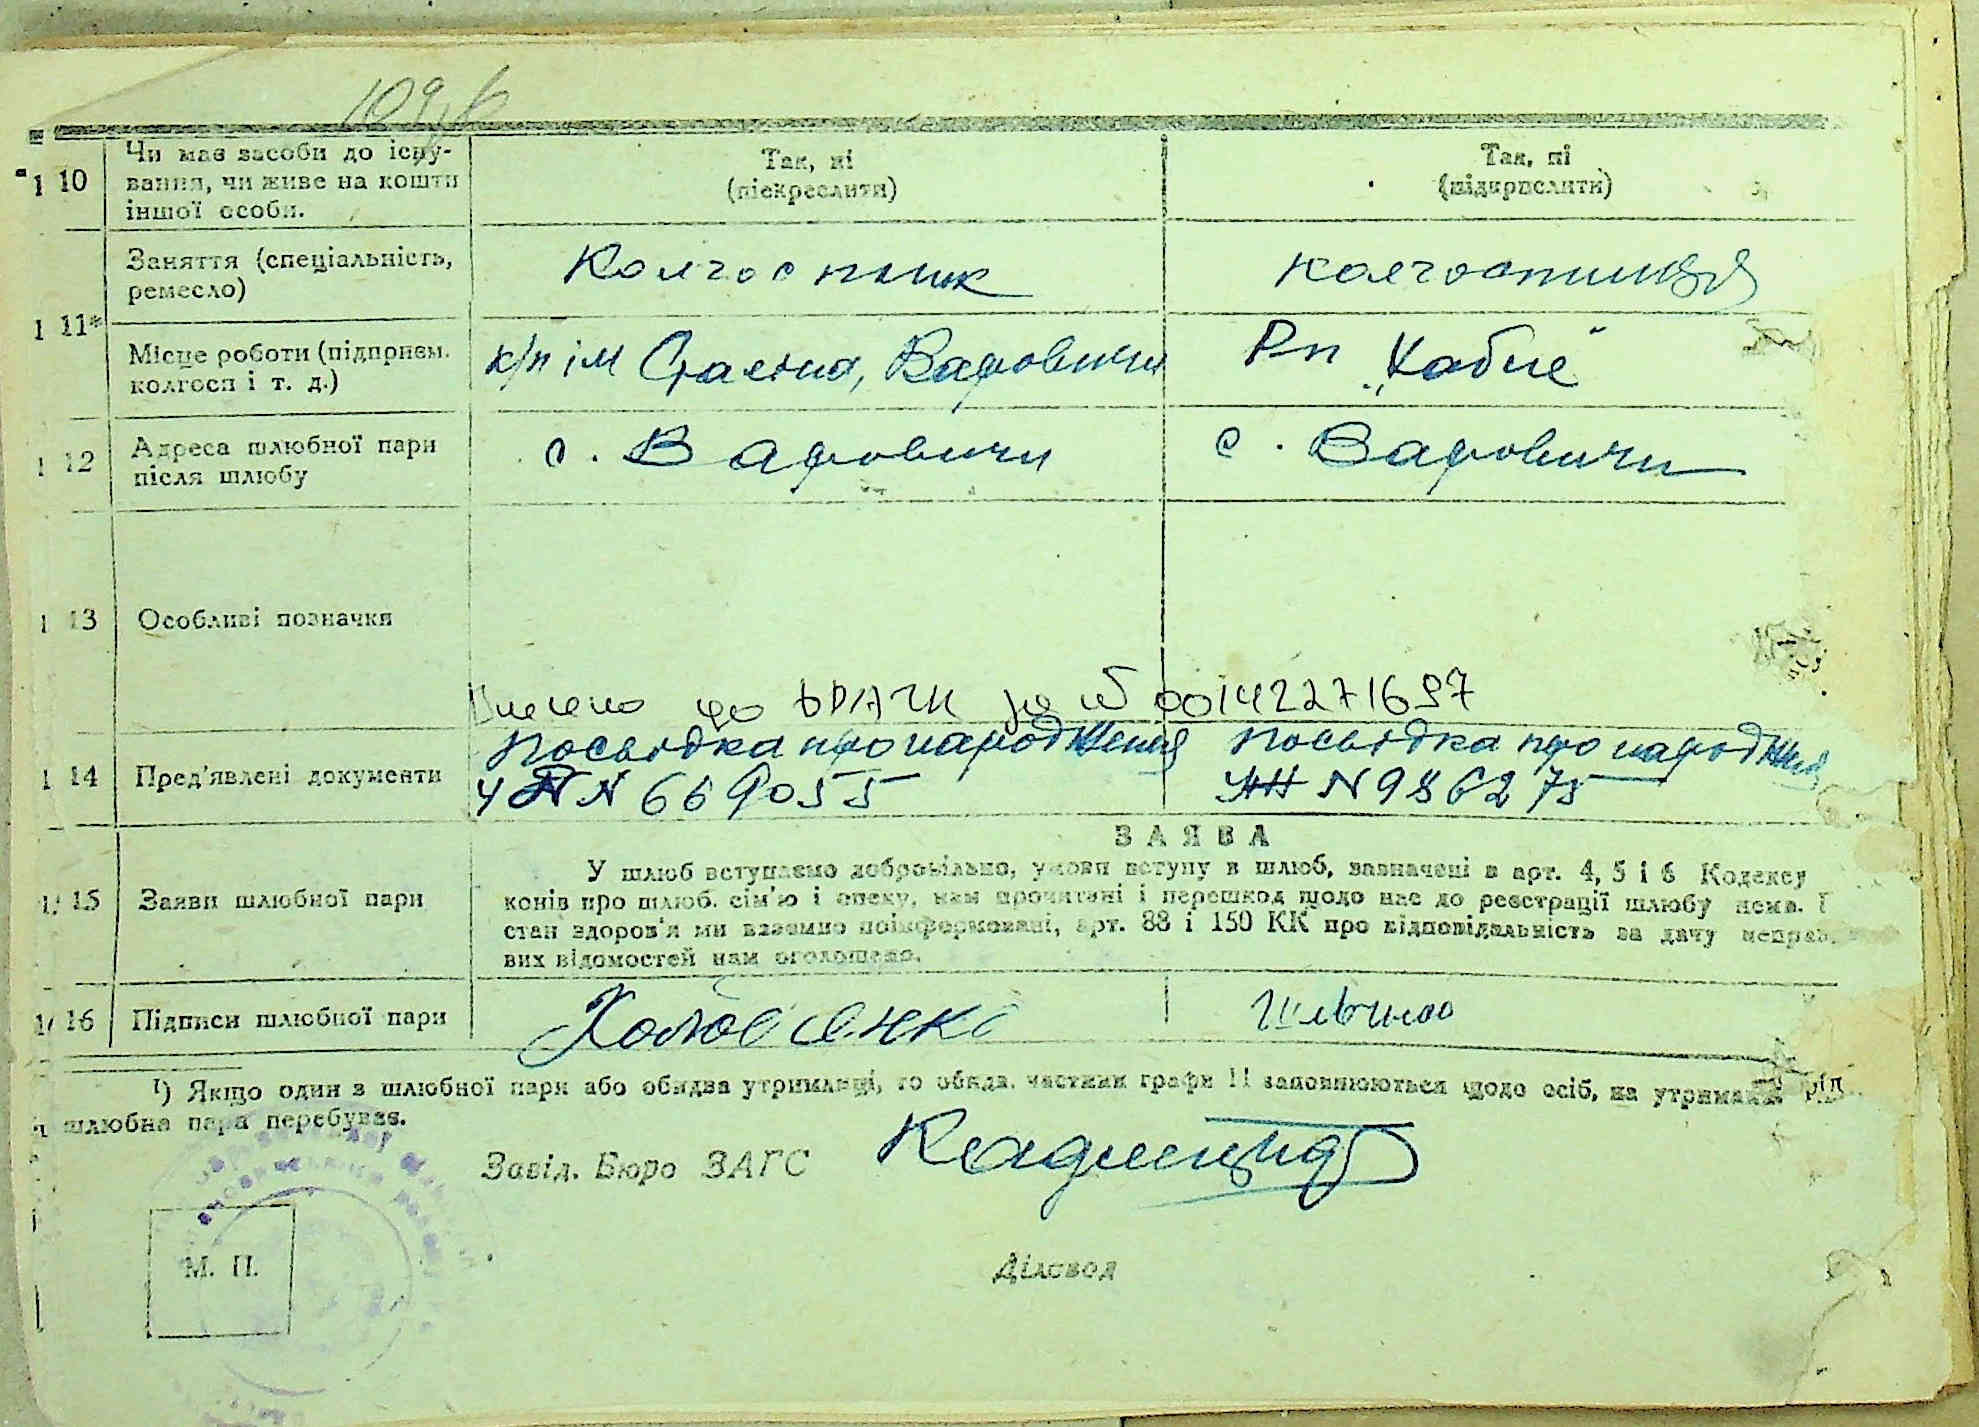 109
10 Чи має засоби до існу-
вання, чи живе на кошти
іншої особи.
Так, ні
(підкреслити)
Так, ні
(підкреслити)
11*
Заняття (спеціальність,
ремесло)
Колгоспник
колгоспниця
Місце роботи (підприєм.
колгосп і т. д.)
к/п ім Сталіна, Варовичи
Рп „Хабне"
12 Адреса шлюбної пари
після шлюбу
с. Варовичи
с. Варовичи
13 Особливі позначки
Внесено до ДРАЦС за № 00142271697
14 Пред'явлені документи
Посьвідка про народження
N 669055
Посьвідка про народження
N 986275
ЗАЯВА
15 Заяви шлюбної пари
У шлюб вступаємо добровільно, умови вступу в шлюб, зазначені в арт. 4, 5 і 6 Кодексу
конів про шлюб. сім'ю і опеку, нам прочитані і перешкод щодо нас до реєстрації шлюбу нема. Ї
стан здоров'я ми взаємно поінформовані, арт. 88 і 150 КК про відповідальність за дачу неправ.
вих відомостей нам оголошено.
16 Підписи шлюбної пари
¹) Якщо один з шлюбної пари або обидва утриманці, то обидв. частини графи 11 заповнюються щодо осіб, на утриман
шлюбна пара перебуває.
Завід. Бюро ЗАГС
М. П.
Діловод